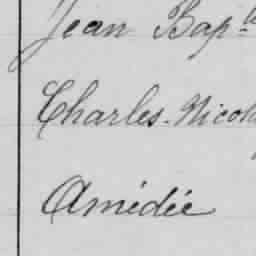 Jean Bap.te
Charles-Nicol
Amédée